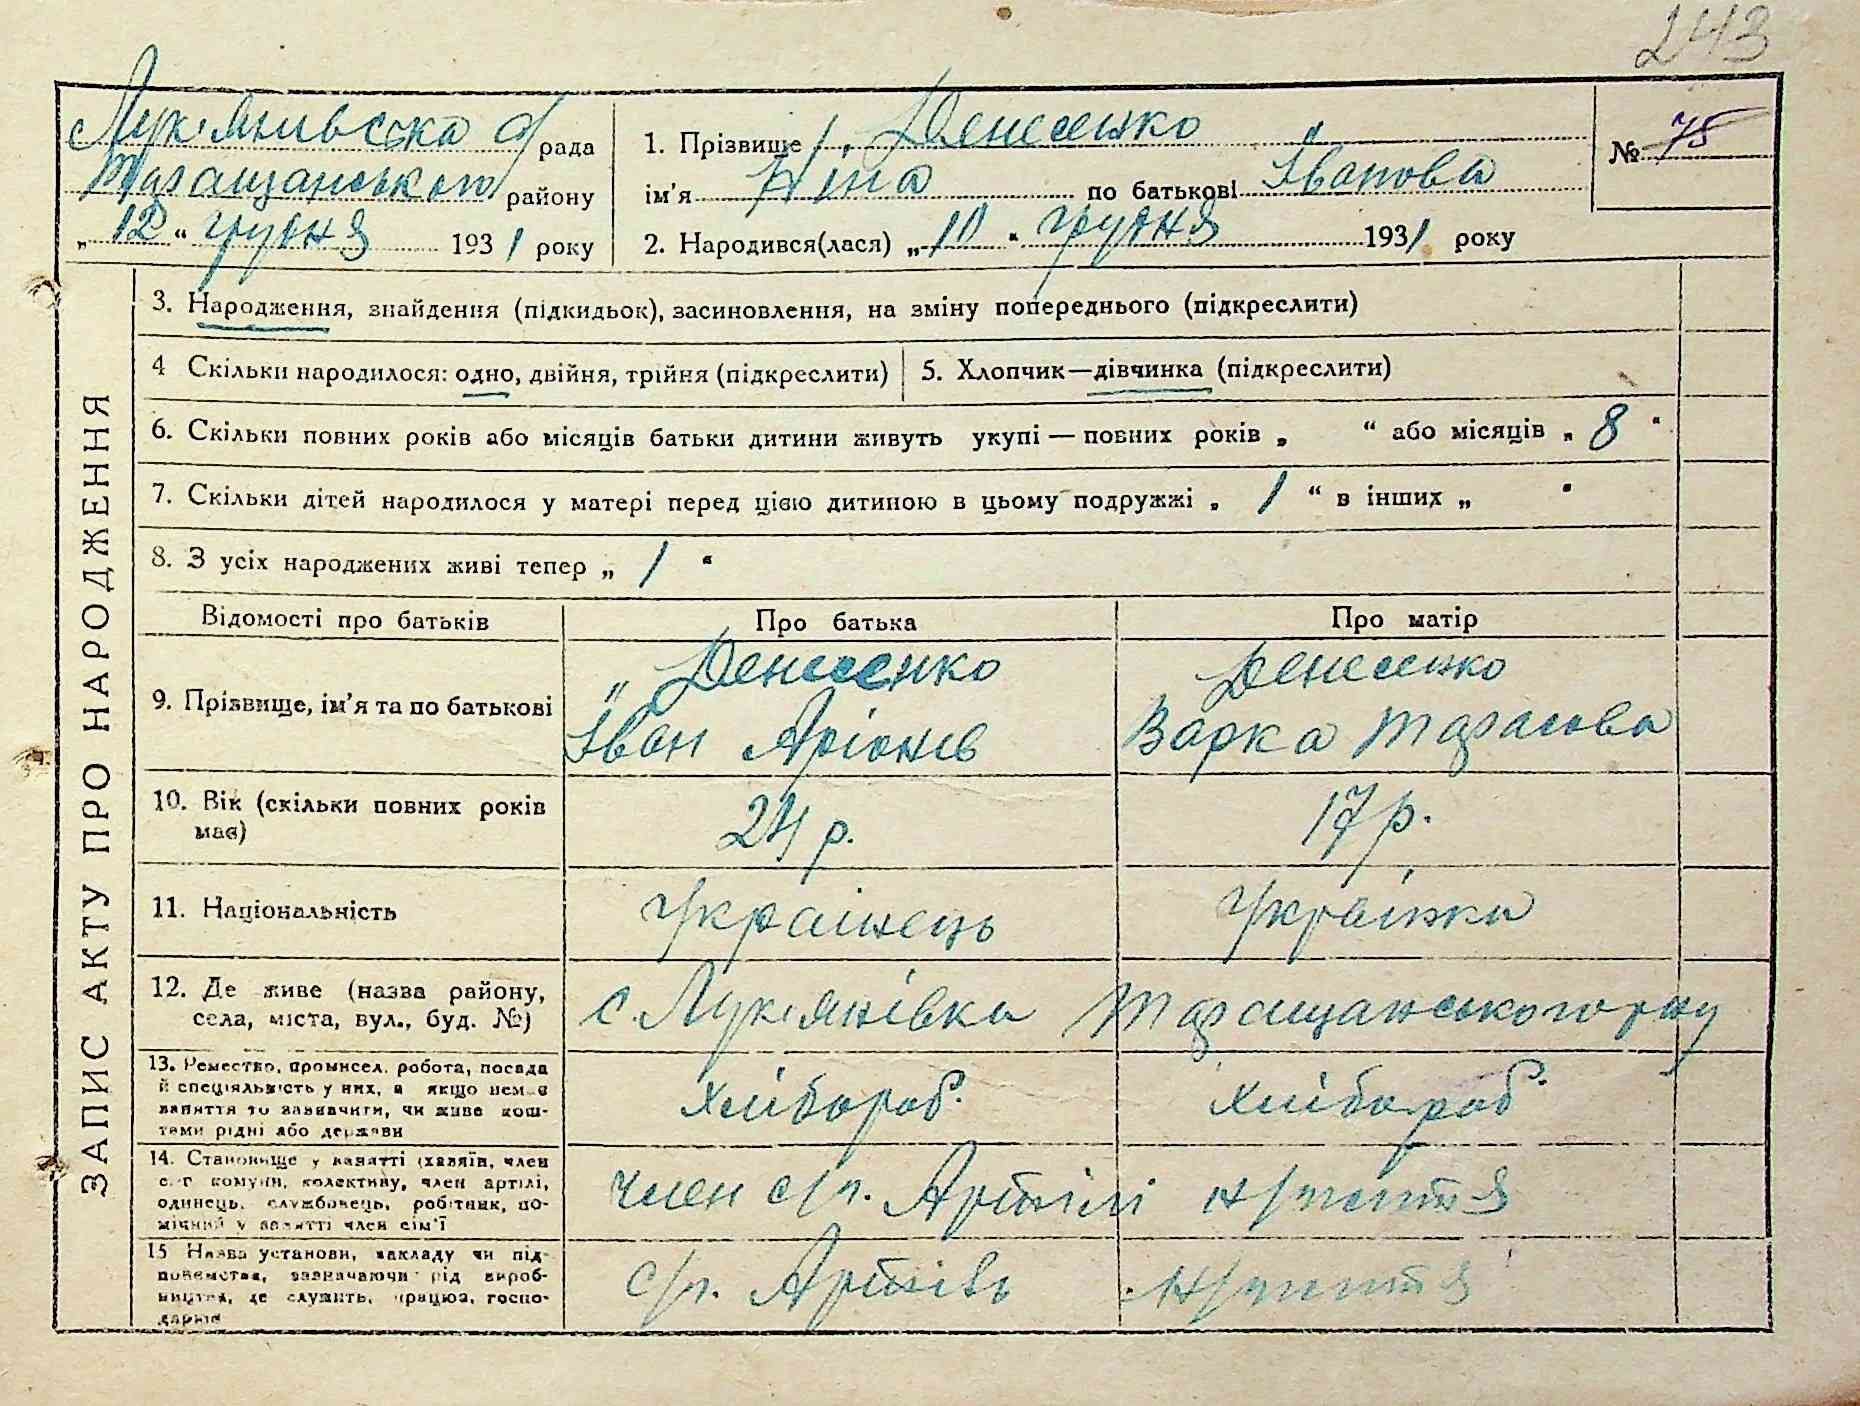 243
Лук'янивська с/рада
Таращанського району
„12“ грудня 1931 року
1. Прізвище Денесенко
ім'я Ніна по батькові Іванова
2. Народився(лася) „10“ грудня 1931 року
№ 75
ЗАПИС АКТУ ПРО НАРОДЖЕННЯ
3. Народження, знайдення (підкидьок), засиновлення, на зміну попереднього (підкреслити)
4 Скільки народилося: одно, двійня, трійня (підкреслити)
5. Хлопчик—дівчинка (підкреслити)
6. Скільки повних років або місяців батьки дитини живуть укупі — повних років „ “ або місяців „ 8 “
7. Скільки дітей народилося у матері перед цією дитиною в цьому подружжі „ 1 “ в інших „ “
8. З усіх народжених живі тепер „ 1 “
Відомості про батьків Про батька Про матір
9. Прізвище, ім'я та по батькові
Денесенко
Іван
Денесенко
Варка Тарасова
10. Вік (скільки повних років має)
24 р.
17 р.
11. Національність
Українець
Українка
12. Де живе (назва району, села, міста, вул., буд. №)
с. Лук'янівка Таращанського р-ну
13. Ремество, промисел, робота, посада
й спеціяльність у них, а якщо немає
заняття то зазначити, чи живе кош-
тами рідні або держави
Хлібороб.
Хлібороб
14. Становище у занятті (хазяїн, член
с.-г комуни, колективу, член артілі,
одинець, службовець, робітник, по-
мічний у занятті член сім'ї
член с/г. Артілі
15 Назва установи, закладу чи під-
приємства, зазначаючи рід вироб-
ництва, де служить, працює, госпо-
дарює
с/г. Артіль